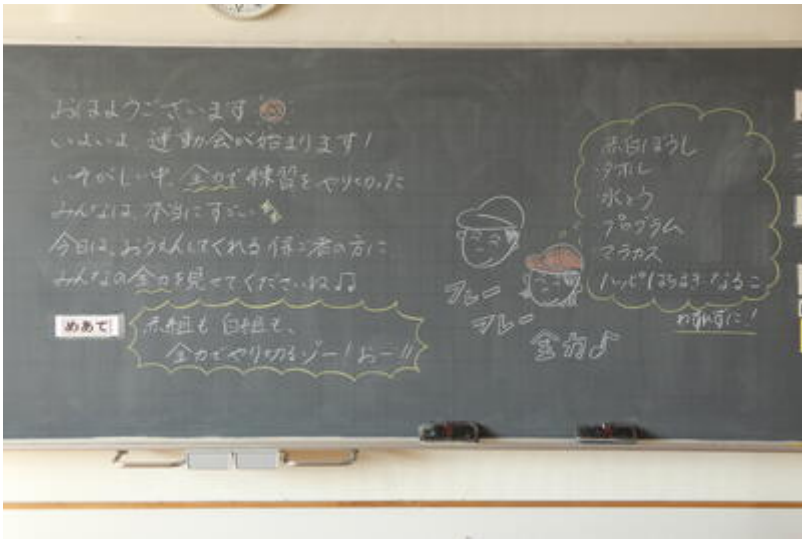 おはようございます
いよいよ 運動会が始まります!
いそがしい中、全力で練習をやりきった
みんなは、本当にすごい
今日は、おうえんしてくれる保ご者の方に
みんなの全力を見せてくださいね♫
めあて
赤組も白組も、
全力でやり切るゾー!おー!!
フレー
フレー
全力♪
赤白ぼうし
タオル
水とう
プログラム
マラカス
ハッピ はちまき なるこ
わすれずに!